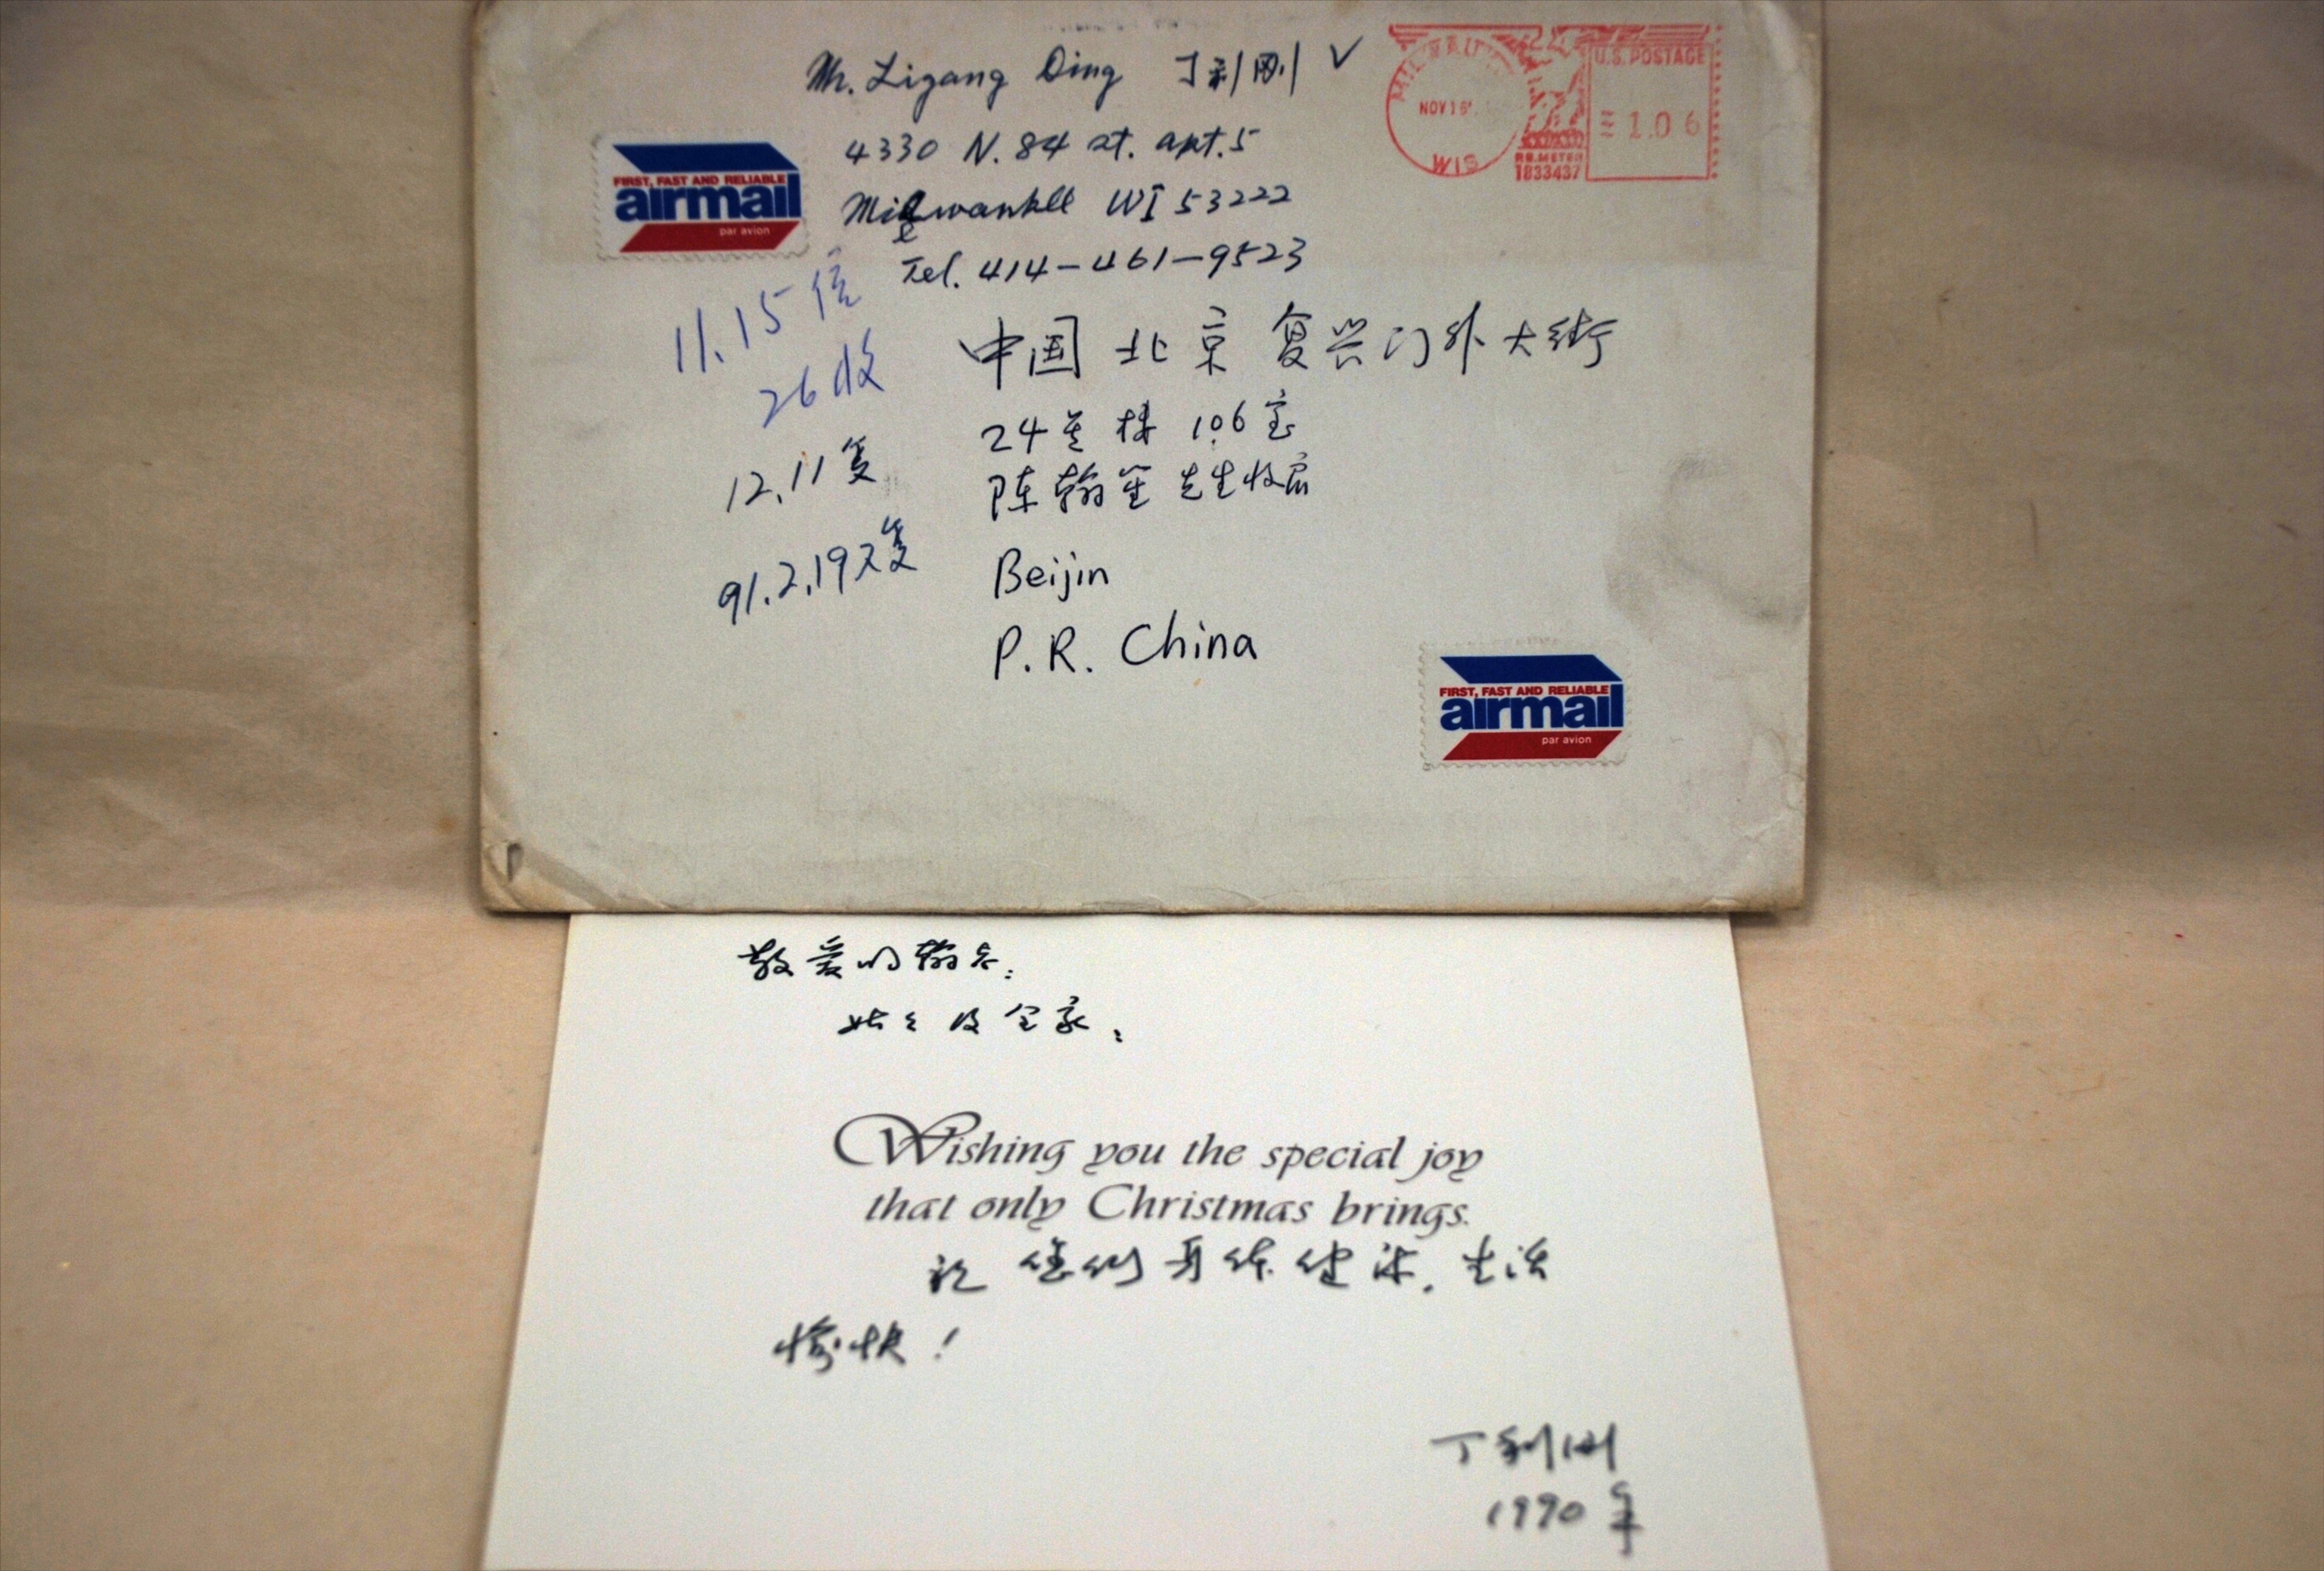 Mr. Ligang Ding 丁利刚 ✓
4330 N. 84 st. apt.5
Milwankee WI 53222
Tel. 414-461-9523
MILWAU
NOV 16'
WIS
P.B. METER
1833437
U.S. POSTAGE
1.06
FIRST, FAST AND RELIABLE
airmail
par avion
11.15信
26收
12.11复
91.2.19又复
中国 北京 复兴门外大街
24号楼 106室
陈翰笙先生收启
Beijin
P.R. China
FIRST, FAST AND RELIABLE
airmail
par avion
敬爱的翰老:
姑姑及全家:
Wishing you the special joy
that only Christmas brings.
祝 您们身体健康. 生活
愉快!
丁利刚
1990年